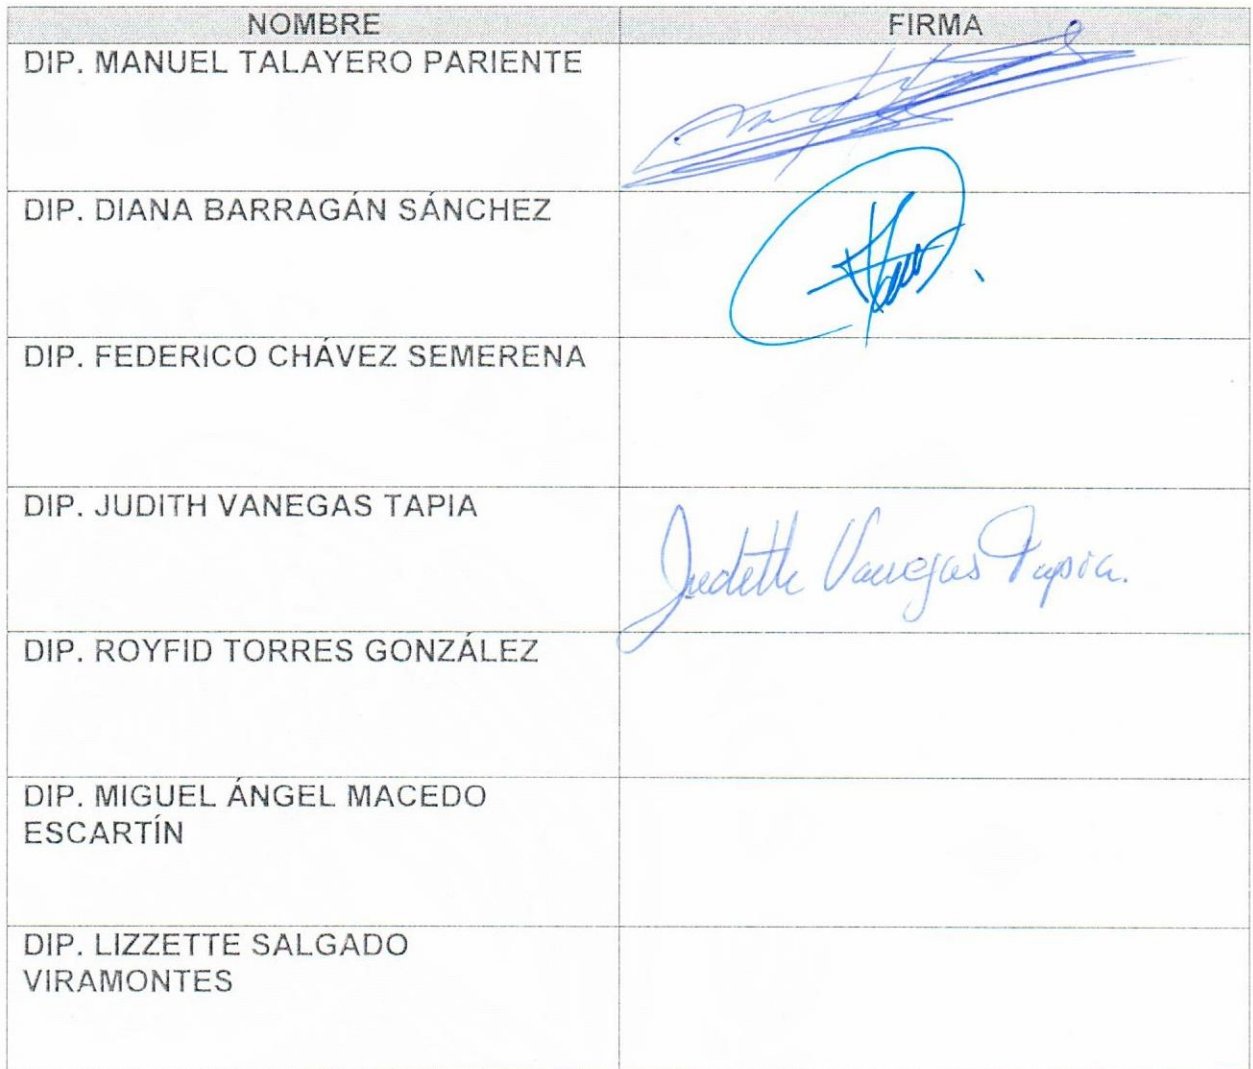 NOMBRE FIRMA
DIP. MANUEL TALAYERO PARIENTE
DIP. DIANA BARRAGÁN SÁNCHEZ
DIP. FEDERICO CHÁVEZ SEMERENA
DIP. JUDITH VANEGAS TAPIA
Judith Vanegas Tapia.
DIP. ROYFID TORRES GONZÁLEZ
DIP. MIGUEL ÁNGEL MACEDO
ESCARTÍN
DIP. LIZZETTE SALGADO
VIRAMONTES